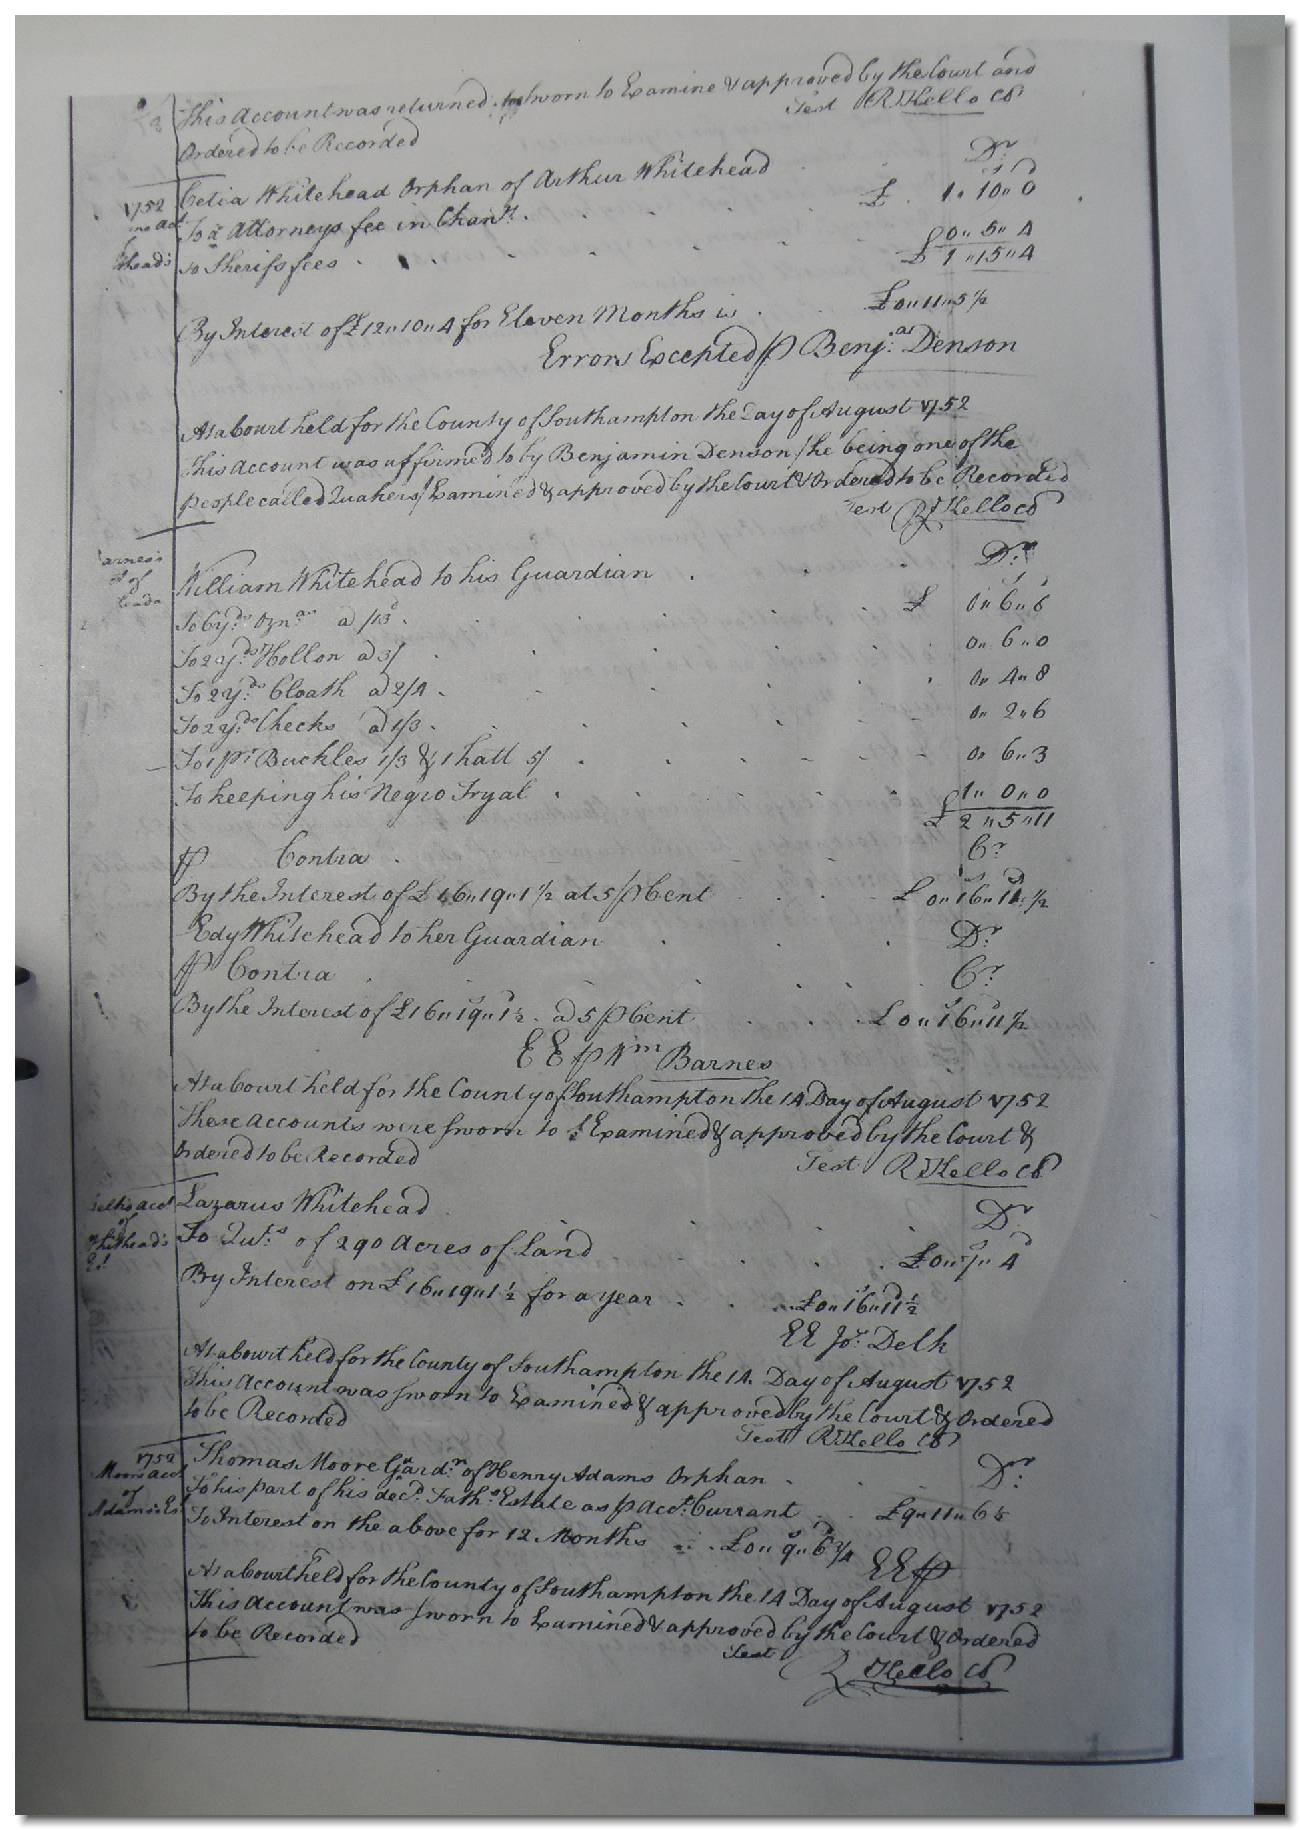 This Account was returned Sworn to Examined & approved by the Court and
Ordered to be Recorded
Test R Kello Cl
1752
Celia Whitehead Orphan of Arthur Whitehead Dr
To a Attorneys fee in Chan.ry £ 1 " 10 " 0
To Sheriffs fees £ 0 " 5 " 4
£ 1 " 15 " 4
By Interest of £12 " 10 " 4 for Eleven Months is £ 0 " 11 " 5 1/2
Errors Excepted p Benj.a Denson
At a Court held for the County of Southampton the Day of August 1752
This Account was affirmed to by Benjamin Denson / he being one of the
people called Quakers / Examined & approved by the Court & Ordered to be Recorded
Test R Kello Cl
William Whitehead to his Guardian Dr
To 6 yds Ozn.as a /13d £ 0 " 6 " 6
To 2 yds Hollon a 3/ 0 " 6 " 0
To 2 yds Cloath a 2/4 0 " 4 " 8
To 2 yds Checks a 1/3 0 " 2 " 6
To 1 pr Buckles 1/3 & 1 hatt 5/ 0 " 6 " 3
To keeping his Negro Tryal 1 " 0 " 0
£ 2 " 5 " 11
p Contra Cr
By the Interest of £16 " 19 " 1 1/2 at 5 p Cent £ 0 " 16 " 11 1/2
Edy Whitehead to her Guardian Dr
p Contra Cr
By the Interest of £16 " 19 " 1 1/2 a 5 p Cent £ 0 " 16 " 11 1/2
E E p Wm Barnes
At a Court held for the County of Southampton the 14 Day of August 1752
These Accounts were Sworn to Examined & approved by the Court &
Ordered to be Recorded
Test R Kello Cl
Lazarus Whitehead Dr
To Qut.s of 290 Acres of Land £ 0 " 7 " 4
By Interest on £16 " 19 " 1 1/2 for a year £ 0 " 16 " 11 1/2
E E Jos. Delk
At a Court held for the County of Southampton the 14 Day of August 1752
This Account was Sworn to Examined & approved by the Court & Ordered
to be Recorded
Test R Kello Cl
1752
Moors acct
of
Adams's Est
Thomas Moore Gard.n of Henry Adams Orphan Dr
To his part of his decd. Fath.s Estate as p Acct. Currant £9 " 11 " 6
To Interest on the above for 12 Months £ 0 " 9 " 6 3/4
E E p
At a Court held for the County of Southampton the 14 Day of August 1752
This Account was Sworn to Examined & approved by the Court & Ordered
to be Recorded
Test R Kello Cl